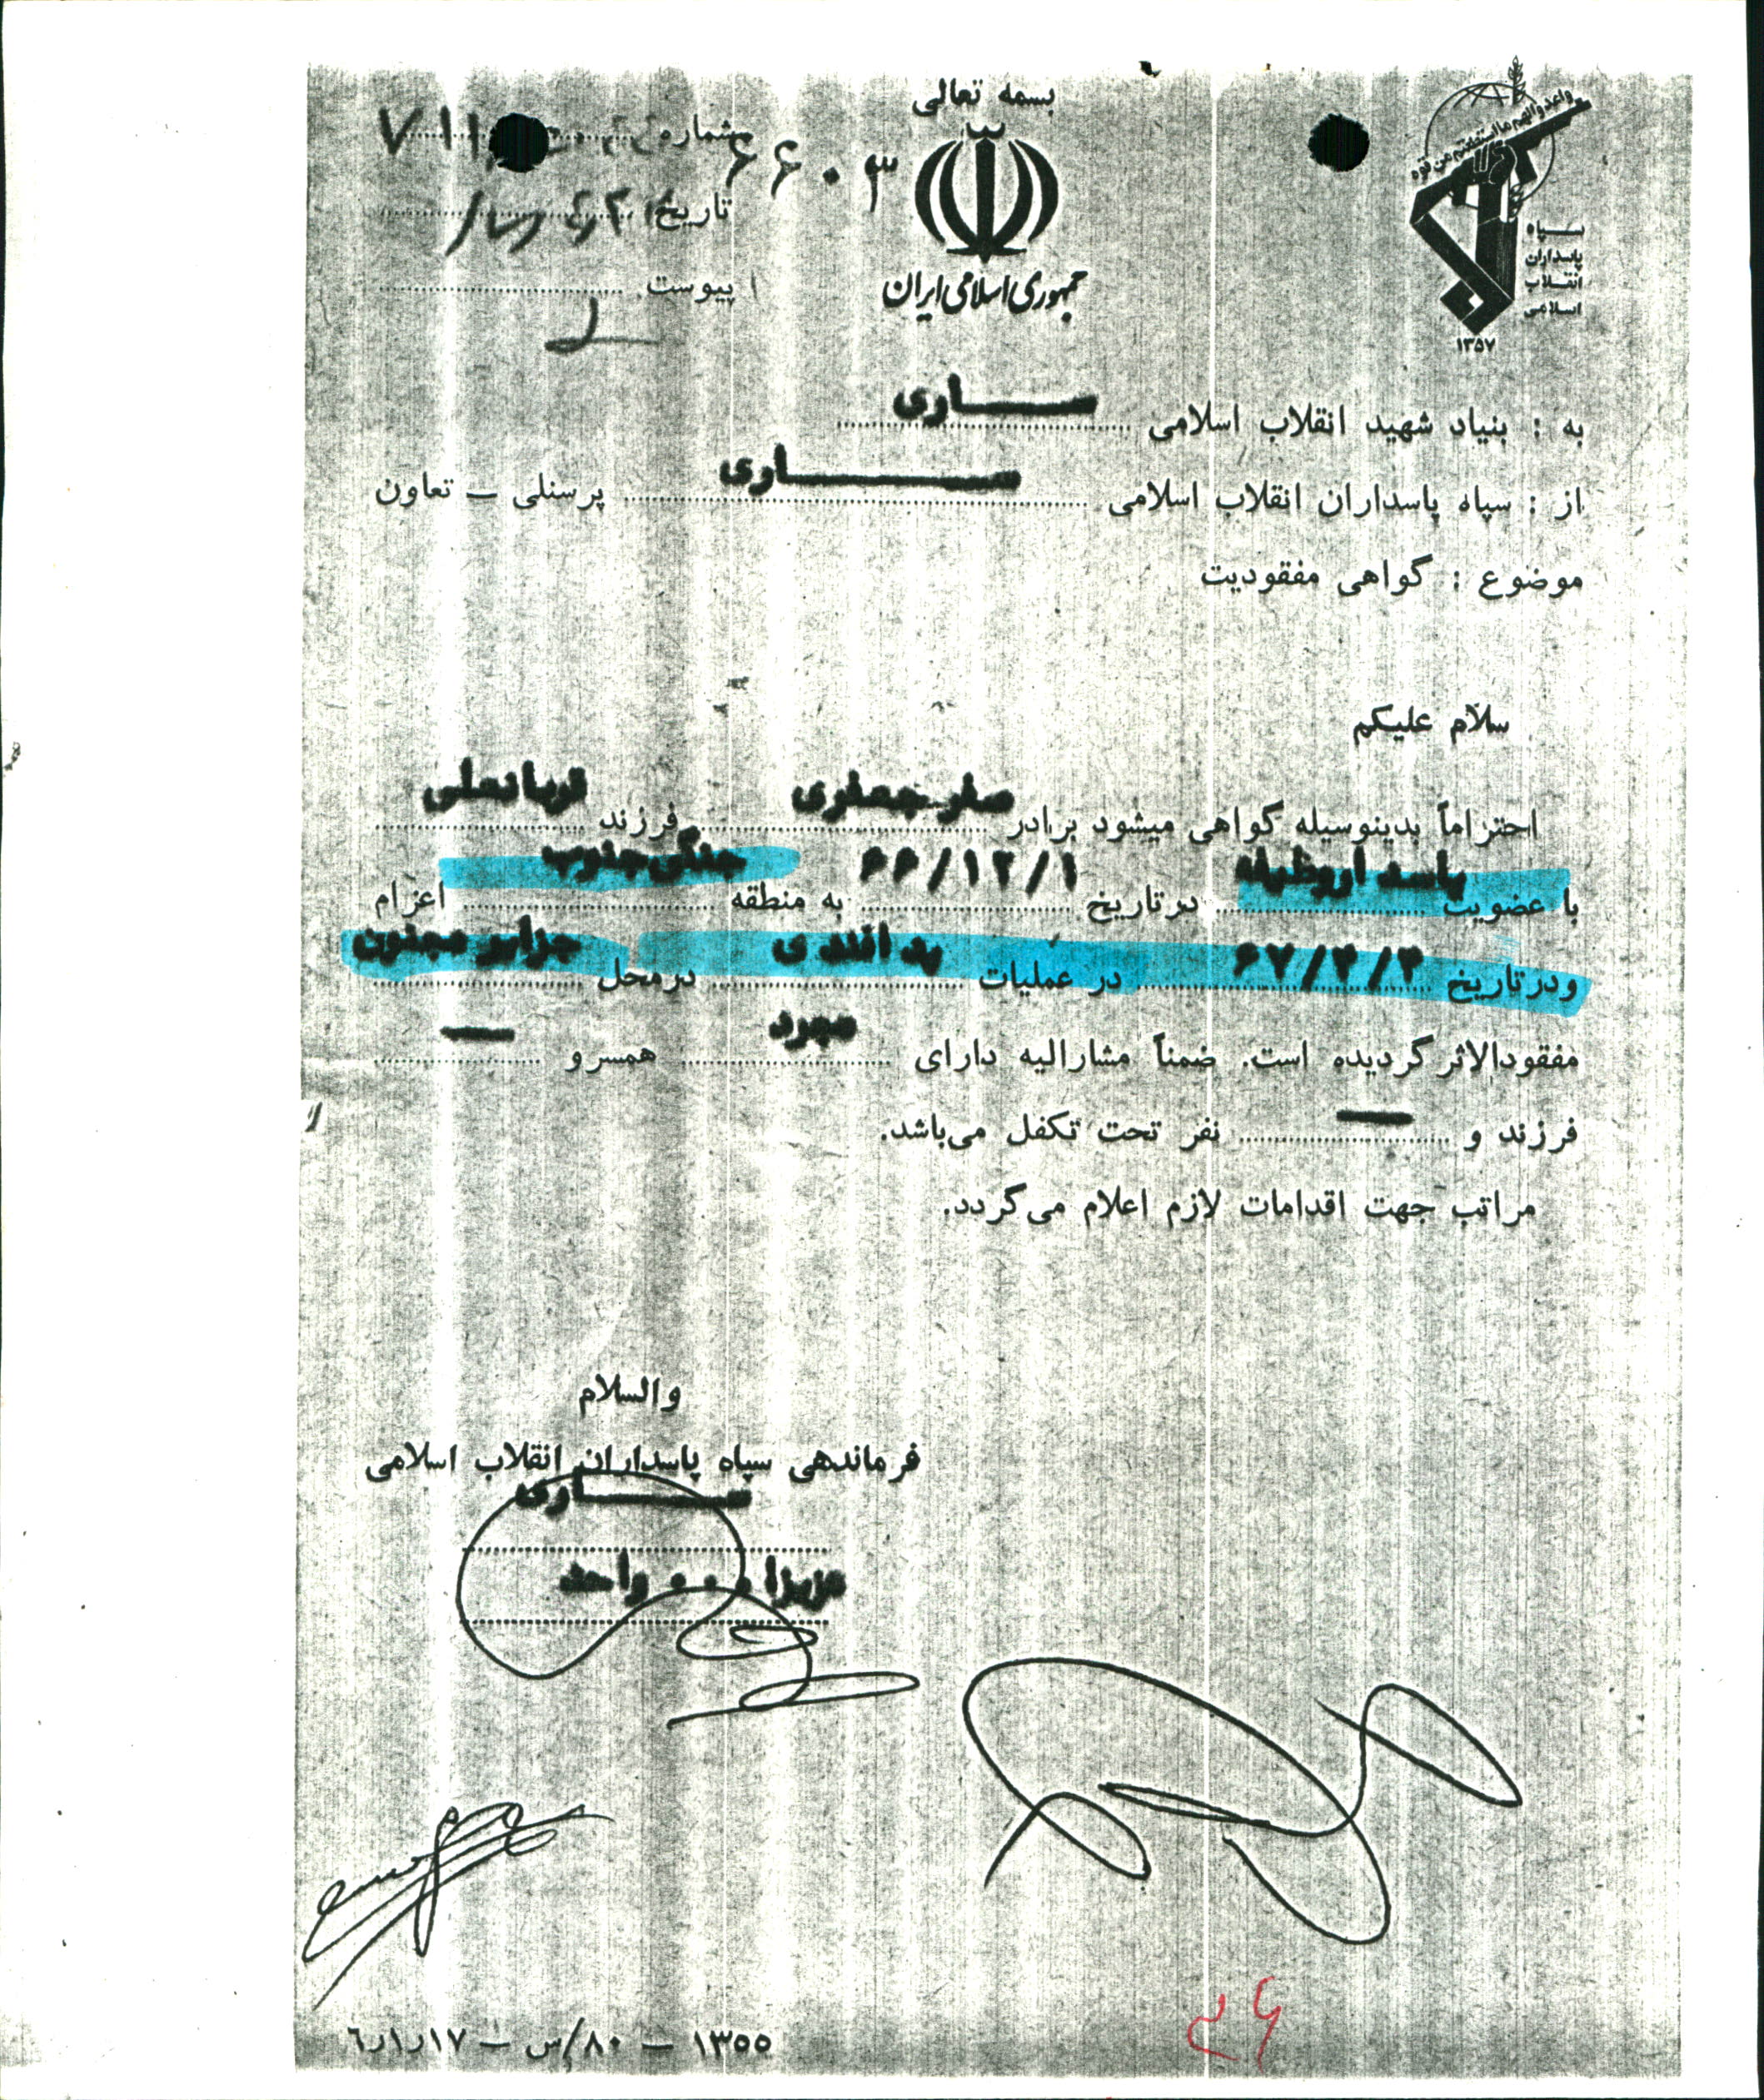 بسمه تعالی
جمهوری اسلامی ایران
واعدوا لهم ما استطعتم من قوه
سپاه
پاسداران
انقلاب
اسلامی
۱۳۵۷
شماره
۶۶۰۳
تاریخ
پیوست
به : بنیاد شهید انقلاب اسلامی ساری
از : سپاه پاسداران انقلاب اسلامی ساری پرسنلی – تعاون
موضوع : گواهی مفقودیت
سلام علیکم
احتراماً بدینوسیله گواهی میشود برادر صفر جعفری فرزند قربانعلی
با عضویت پاسدار وظیفه در تاریخ ۶۶/۱۲/۱ به منطقه جنگی جنوب اعزام
و در تاریخ ۶۷/۴/۴ در عملیات پدافندی در محل جزایر مجنون
مفقودالاثر گردیده است. ضمناً مشارالیه دارای مجرد همسر و —
فرزند و — نفر تحت تکفل می‌باشد.
مراتب جهت اقدامات لازم اعلام می‌گردد.
والسلام
فرماندهی سپاه پاسداران انقلاب اسلامی
ساری
عزیزا... واحد
۲۶
۱۳۵۵ – ۸۰/س – ۱۷ر۱ر٦